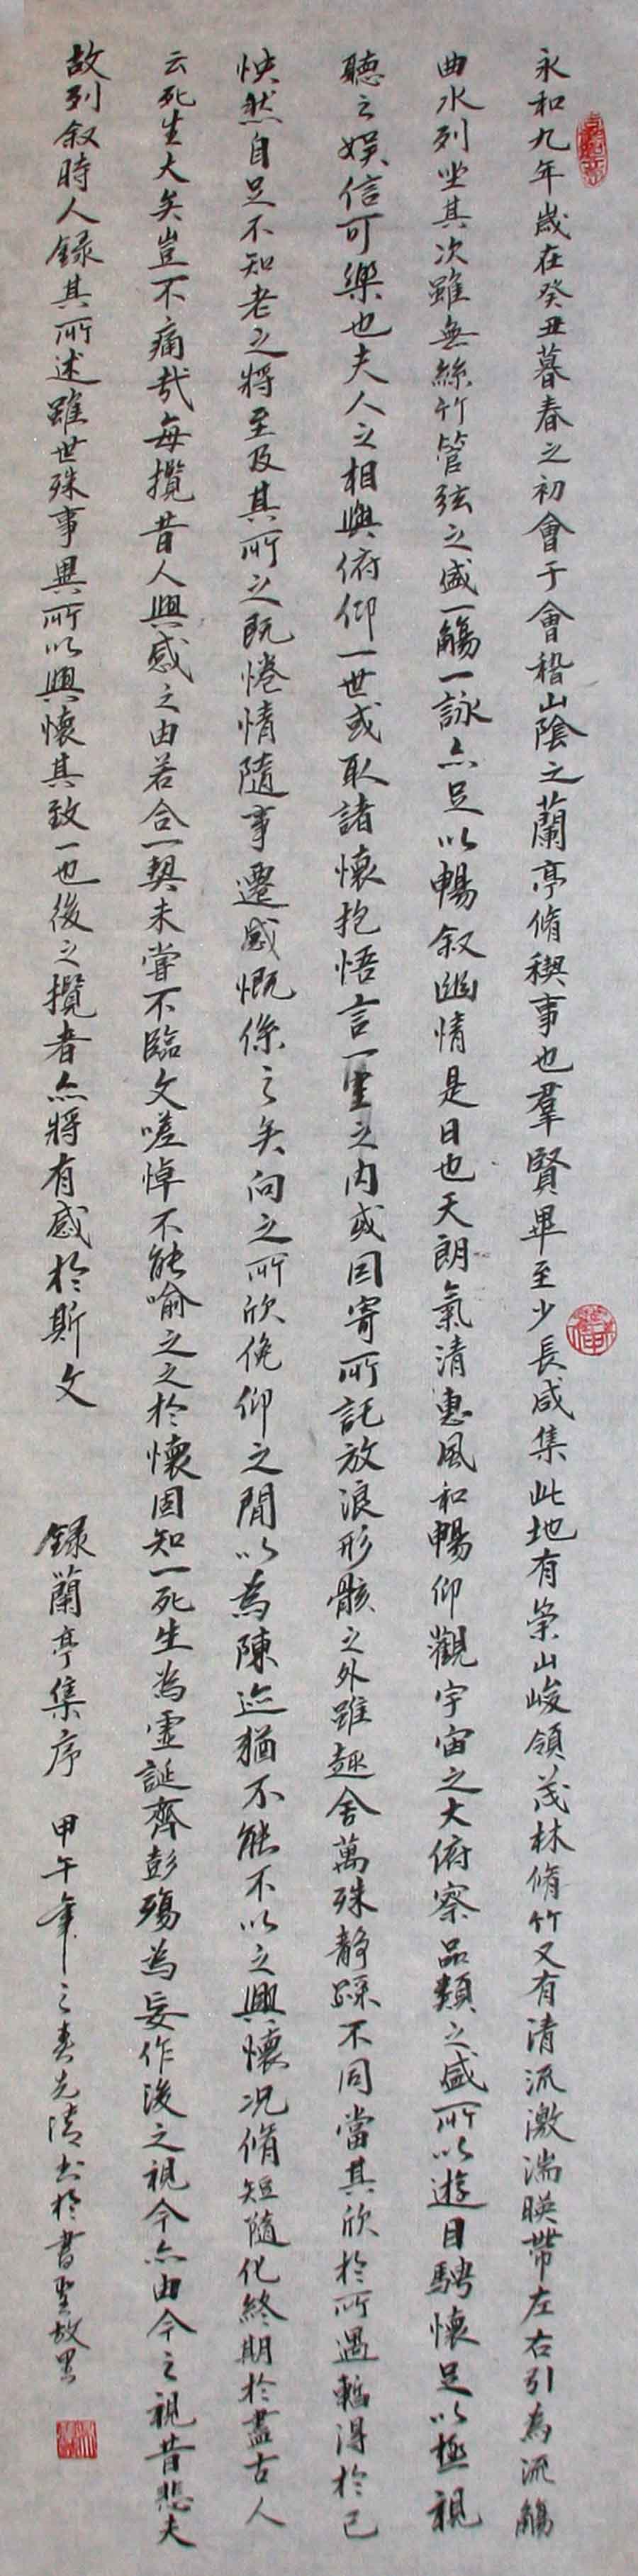 永和九年歲在癸丑暮春之初會于會稽山陰之蘭亭脩稧事也羣賢畢至少長咸集此地有崇山峻領茂林脩竹又有清流激湍暎帶左右引為流觴
曲水列坐其次雖無絲竹管弦之盛一觴一詠亦足以暢叙幽情是日也天朗氣清惠風和暢仰觀宇宙之大俯察品類之盛所以遊目騁懷足以極視
聽之娛信可樂也夫人之相與俯仰一世或取諸懷抱悟言一室之内或因寄所託放浪形骸之外雖趣舍萬殊静躁不同當其欣於所遇暫得於己
怏然自足不知老之將至及其所之既惓情隨事遷感慨係之矣向之所欣俛仰之閒以為陳迹猶不能不以之興懷况脩短隨化終期於盡古人
云死生大矣豈不痛哉每攬昔人興感之由若合一契未嘗不臨文嗟悼不能喻之之於懷固知一死生為虛誕齊彭殤為妄作後之視今亦由今之視昔悲夫
故列叙時人録其所述雖世殊事異所以興懷其致一也後之攬者亦將有感於斯文 録蘭亭集序 甲午年之春先清書於書聖故里